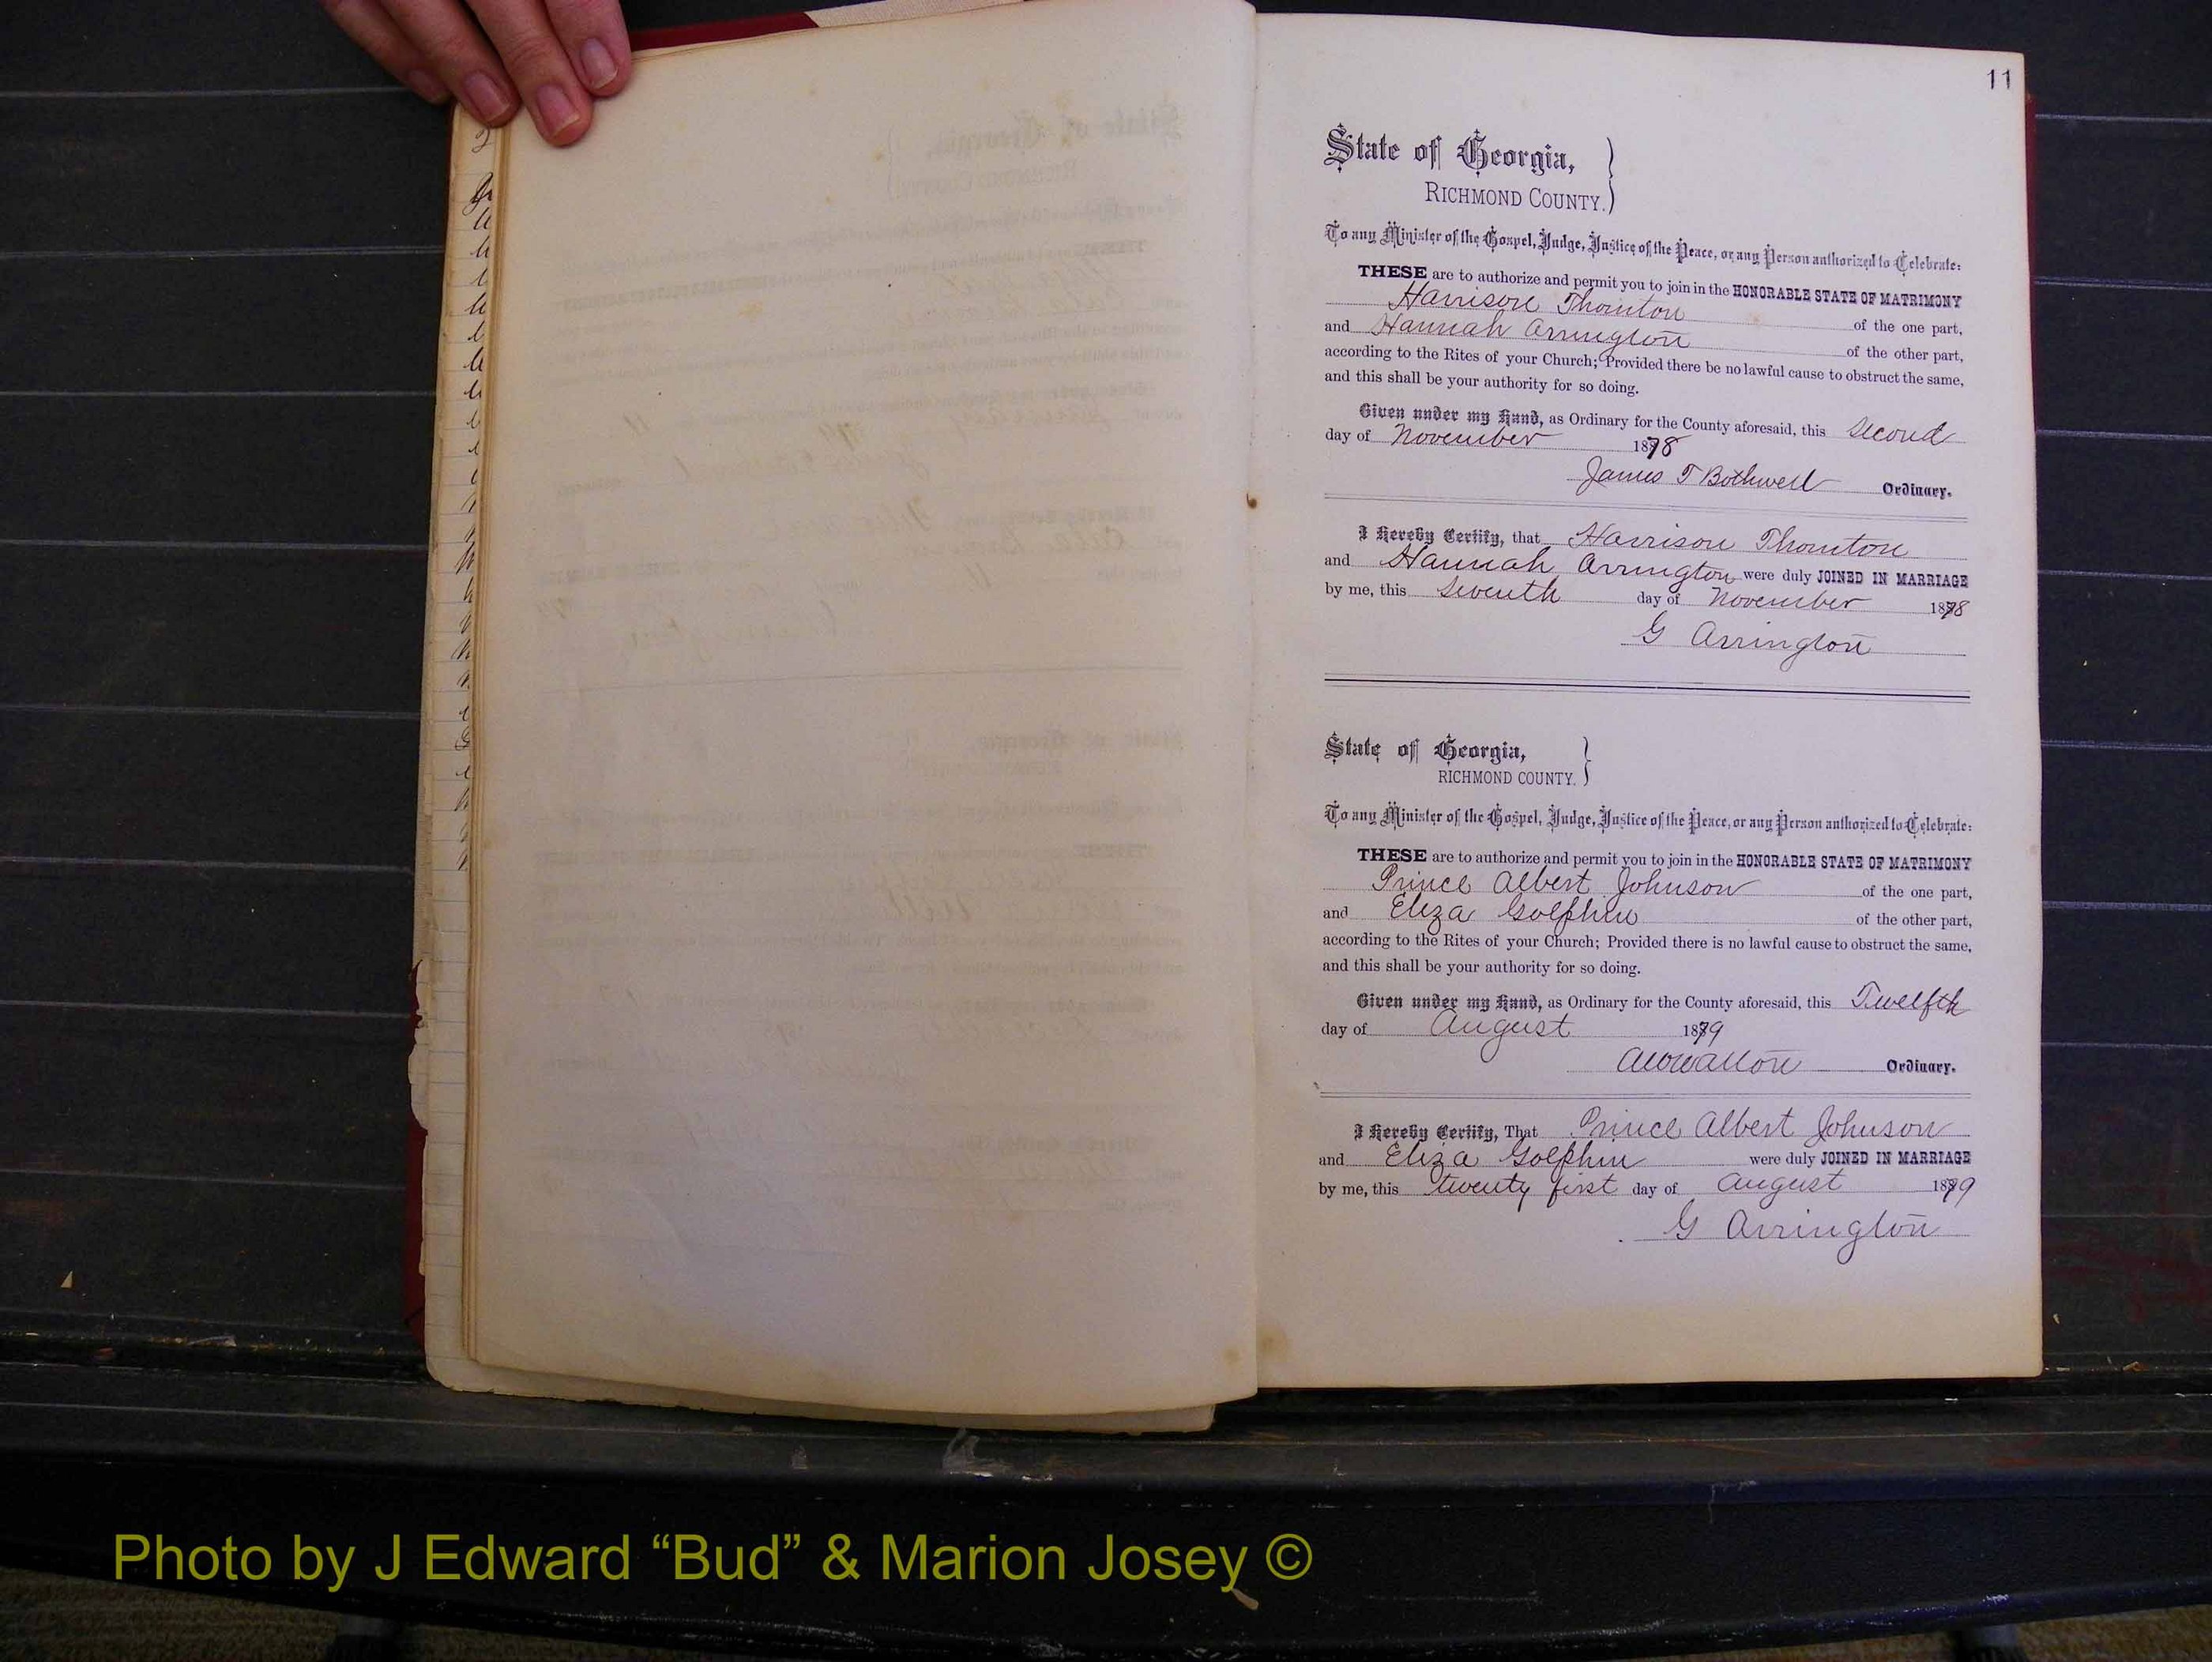 11
State of Georgia,
RICHMOND COUNTY.
To any Minister of the Gospel, Judge, Justice of the Peace, or any Person authorized to Celebrate:
THESE are to authorize and permit you to join in the HONORABLE STATE OF MATRIMONY
Harrison Thornton of the one part,
and Hannah Arrington of the other part,
according to the Rites of your Church; Provided there be no lawful cause to obstruct the same,
and this shall be your authority for so doing.
Given under my Hand, as Ordinary for the County aforesaid, this Second
day of November 1878
James T Bothwell Ordinary.
I Hereby Certify, that Harrison Thornton
and Hannah Arrington were duly JOINED IN MARRIAGE
by me, this Seventh day of November 1878
G Arrington
State of Georgia,
RICHMOND COUNTY.
To any Minister of the Gospel, Judge, Justice of the Peace, or any Person authorized to Celebrate:
THESE are to authorize and permit you to join in the HONORABLE STATE OF MATRIMONY
Prince Albert Johnson of the one part,
and Eliza Golphin of the other part,
according to the Rites of your Church; Provided there is no lawful cause to obstruct the same,
and this shall be your authority for so doing.
Given under my Hand, as Ordinary for the County aforesaid, this Twelfth
day of August 1879
Ordinary.
I Hereby Certify, That Prince Albert Johnson
and Eliza Golphin were duly JOINED IN MARRIAGE
by me, this twenty first day of August 1879
G Arrington
Photo by J Edward “Bud” & Marion Josey ©